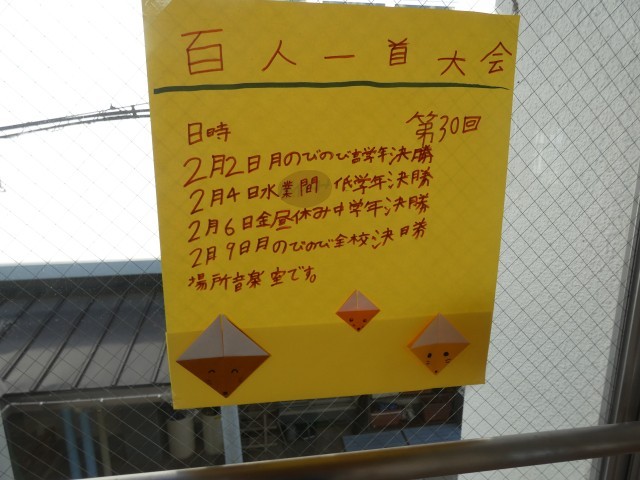 百人一首大会
第30回
日時
2月2日月のびのび高学年決勝
2月4日水業間 低学年決勝
2月6日金昼休み中学年決勝
2月9日月のびのび全校決勝
場所音楽室です。